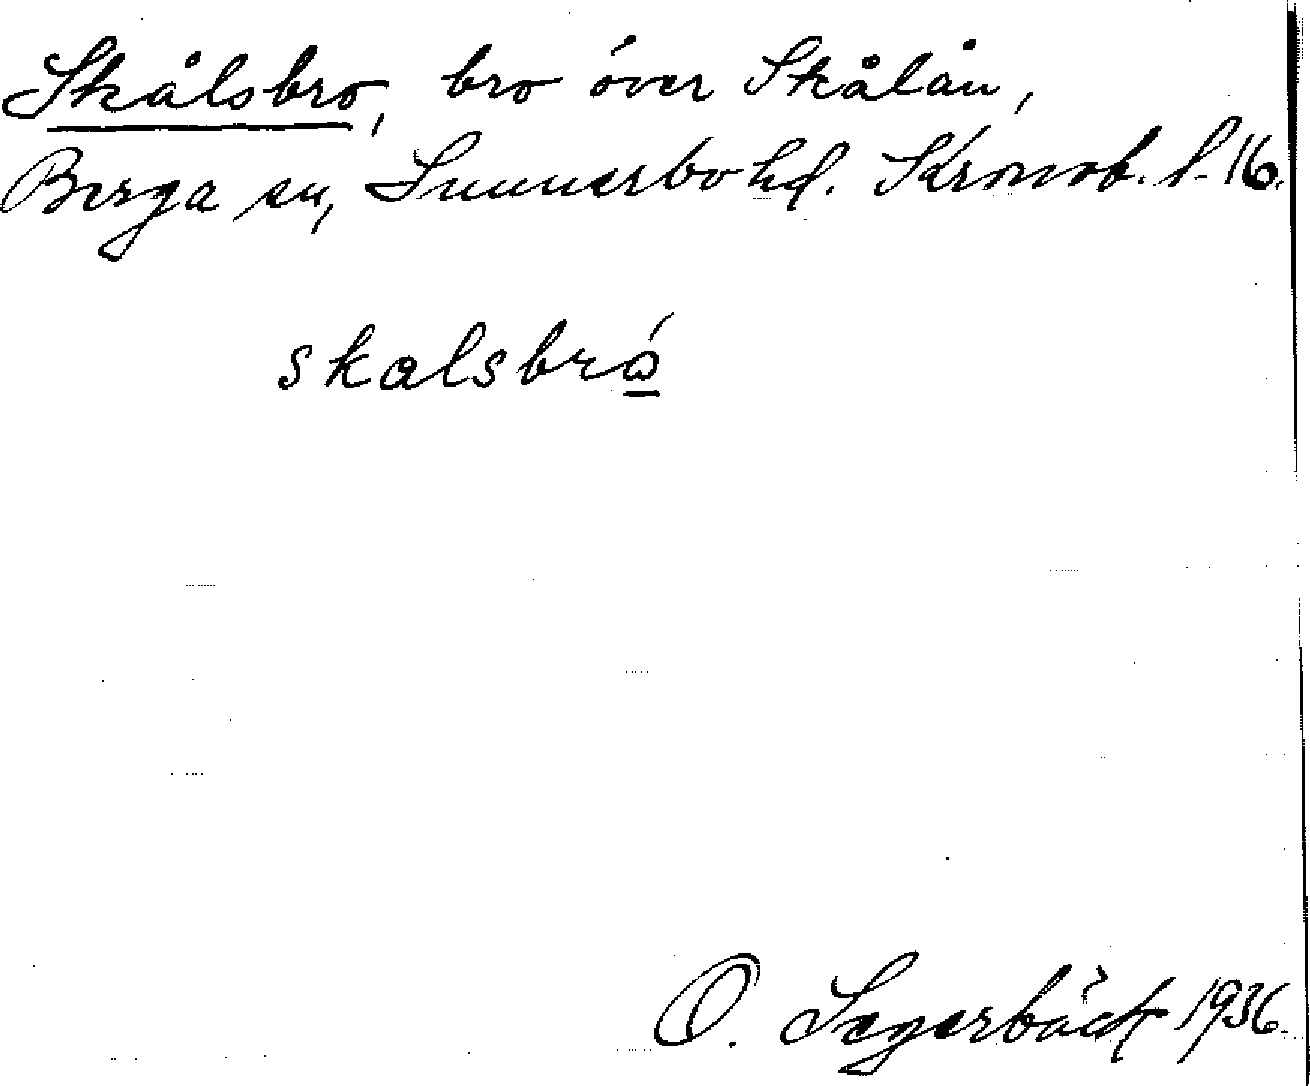 Skålsbro, bro över Skålån,
Berga sn, Sunnerbo hd. Kronob. l. 16.
skalsbró
O. Segerbäck 1936.